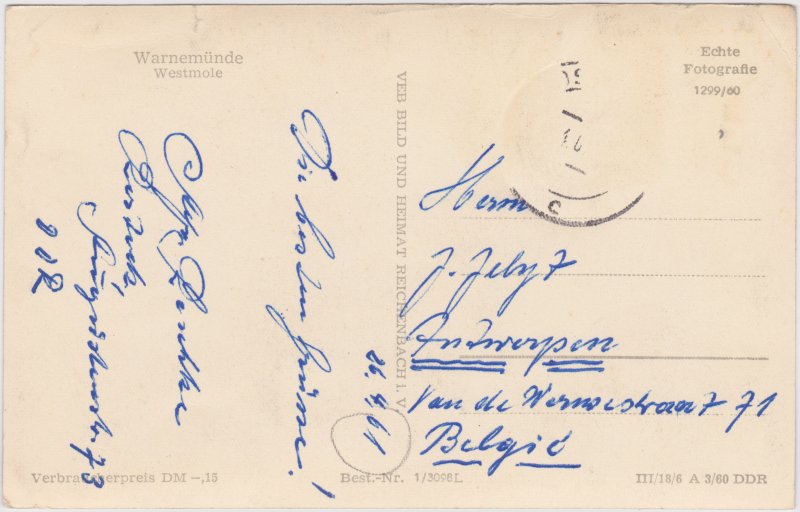 Warnemünde
Westmole
Die besten Grüsse!
26.4.61
Rostock
73
DDR
VEB BILD UND HEIMAT REICHENBACH i. V.
Echte
Fotografie
1299/60
Herrn
J.
Antwerpen
Van de 71
België
Verbraucherpreis DM -,15
Best.-Nr. 1/3098L
III/18/6 A 3/60 DDR